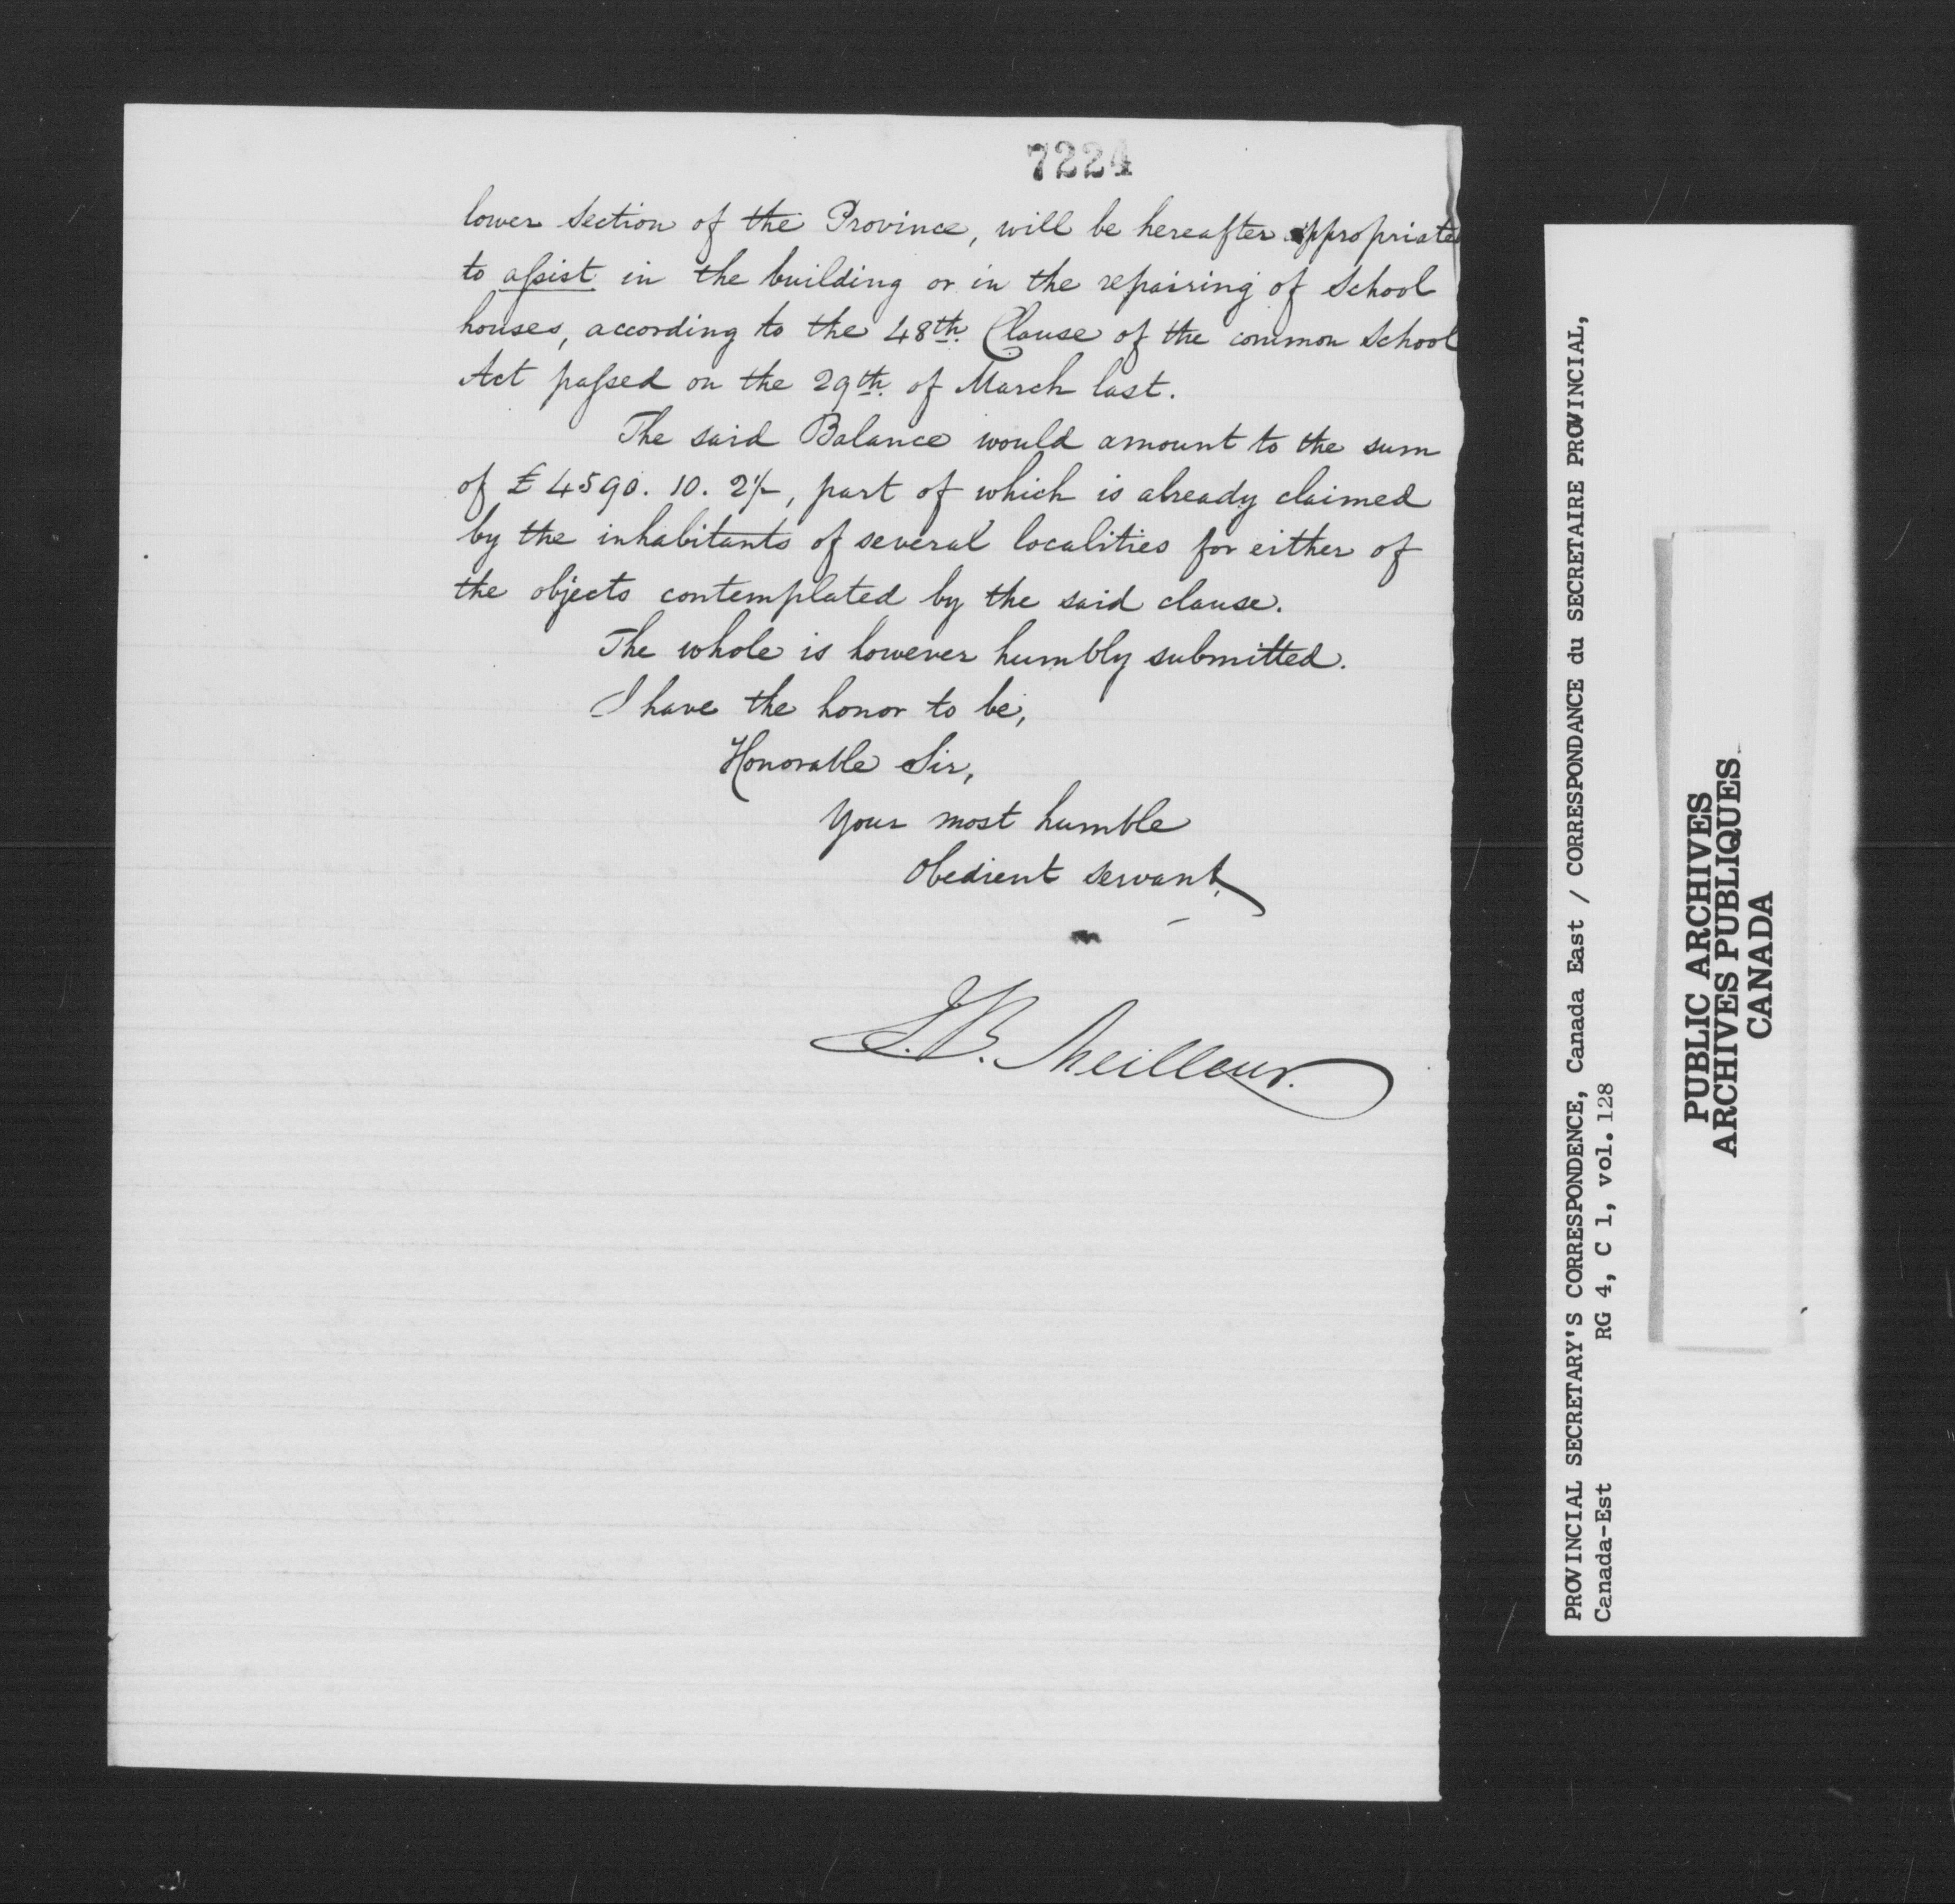 7224
lower Section of the Province, will be hereafter appropriated
to assist in the building or in the repairing of School
houses, according to the 48th. Clause of the common School
Act passed on the 29th. of March last.
The said Balance would amount to the sum
of £4590. 10. 2½, part of which is already claimed
by the inhabitants of several localities for either of
the objects contemplated by the said clause.
The whole is however humbly submitted.
I have the honor to be,
Honorable Sir,
Your most humble
Obedient servant,
J. B. Meilleur.
PROVINCIAL SECRETARY'S CORRESPONDENCE, Canada East / CORRESPONDANCE du SECRETAIRE PROVINCIAL,
Canada-Est RG 4, C 1, vol. 128
PUBLIC ARCHIVES
ARCHIVES PUBLIQUES
CANADA